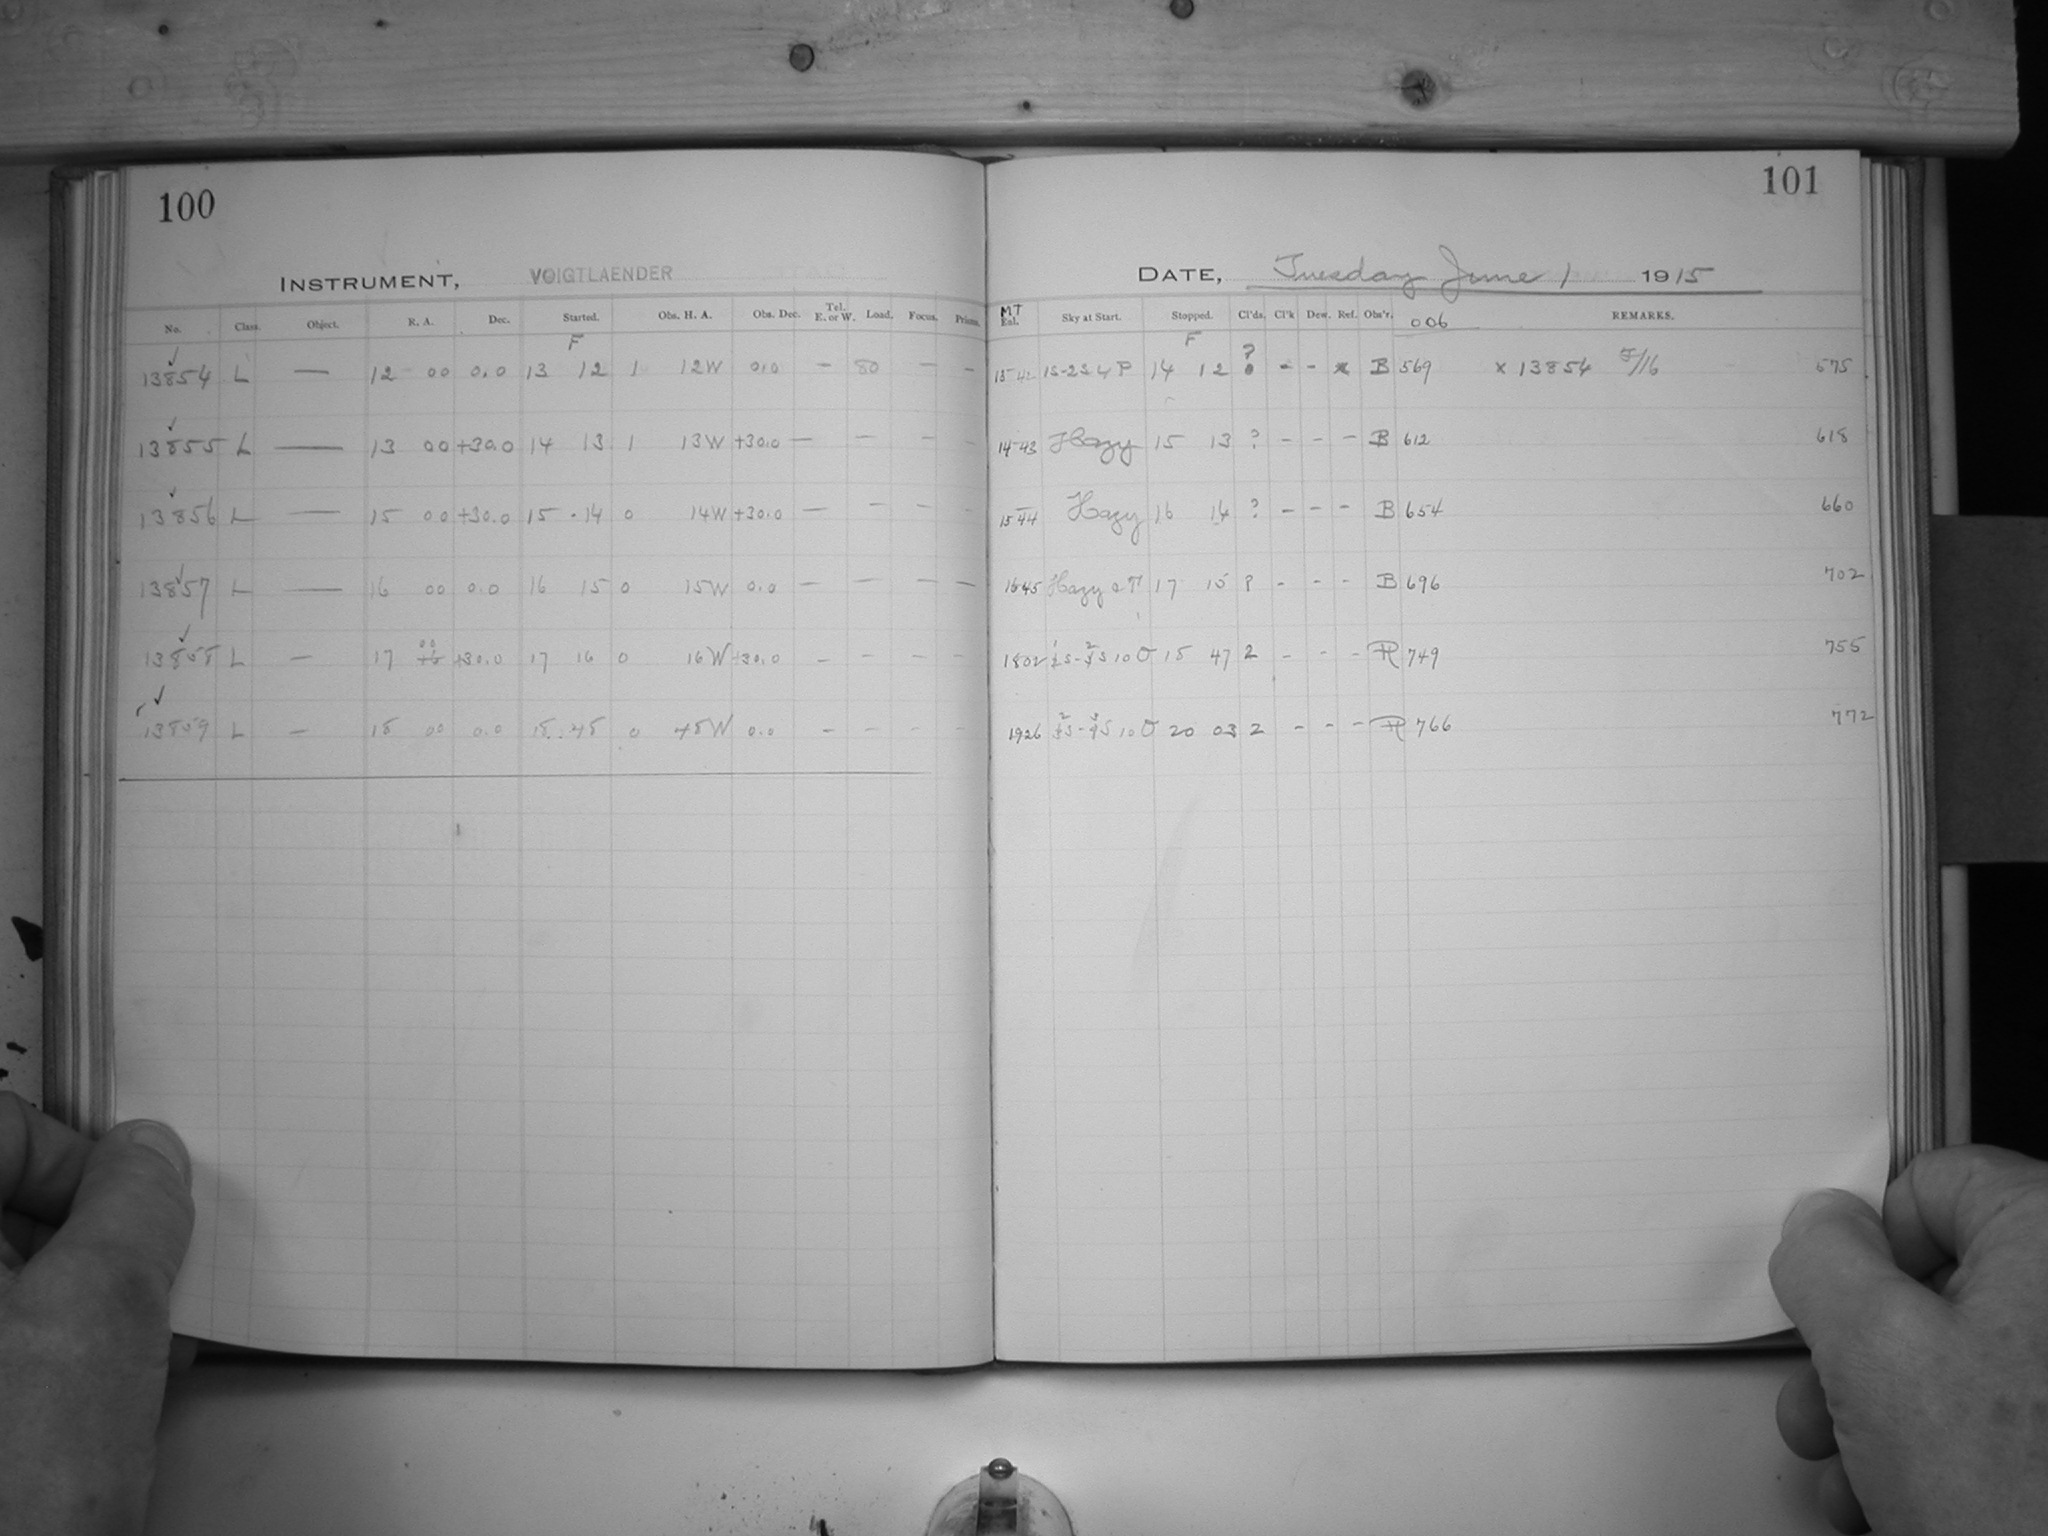 100
INSTRUMENT, VOIGTLAENDER
No. Class. Object. R. A. Dec. Started. Obs. H. A. Obs. Dec. Tel. E. or W. Load. Focus. Prisms.
F
13854 L — 12 00 0.0 13 12 1 12W 0.0 — 80 — —
13855 L — 13 00 +30.0 14 13 1 13W +30.0 — — — -
13856 L — 15 00 +30.0 15 14 0 14W +30.0 — — - -
13857 L — 16 00 0.0 16 15 0 15W 0.0 — — — —
13858 L — 17 00 +30.0 17 16 0 16W +30.0 - - - -
13859 L — 18 00 0.0 18 48 0 48W 0.0 - - - -
101
DATE, Tuesday June 1 1915
MT
Exl. Sky at Start. Stopped. Cl'ds. Cl'k Dew. Ref. Obs'r. 006 REMARKS.
F
1S-2S 4 P 14 12 ? - - x B 569 x 13854 575
14 43 Hazy 15 13 ? - - - B 612 618
15 44 Hazy 16 14 ? - - - B 654 660
Hazy 17 15 ? - - - B 696 702
1802 10 47 2 - - - 749 755
1926 10 20 03 2 - - - 766 772